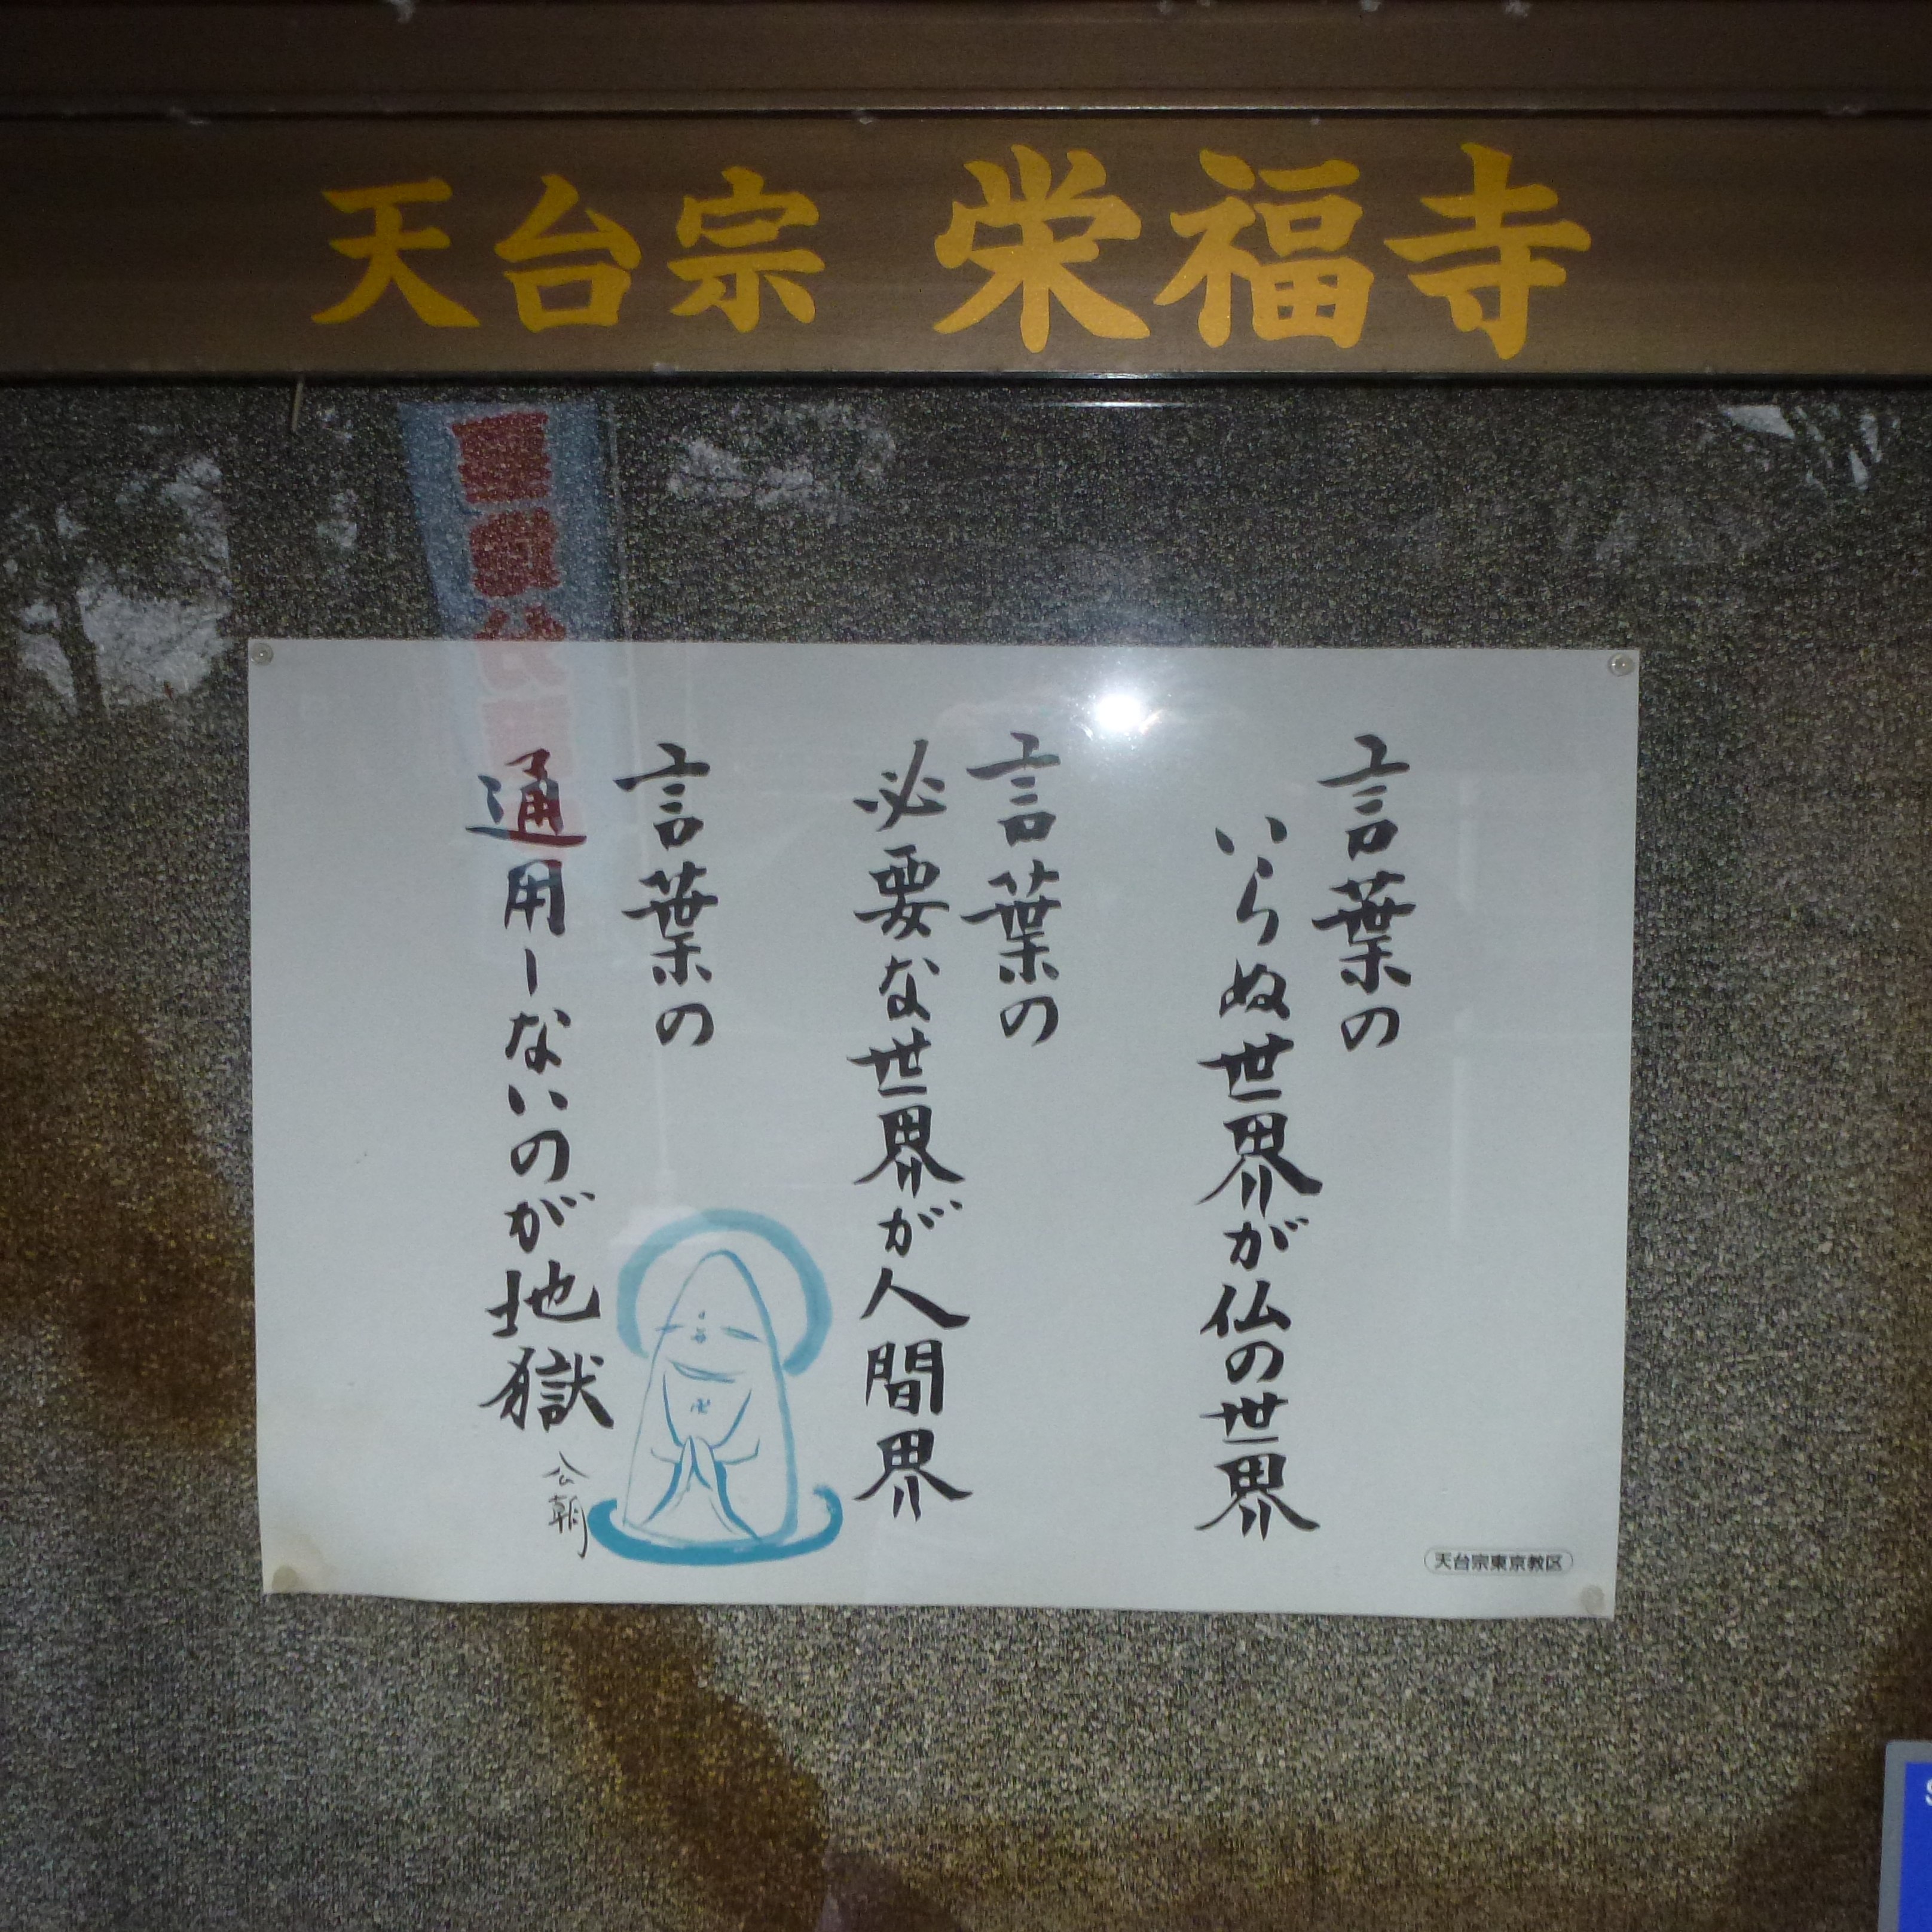 天台宗 栄福寺
言葉の
いらぬ世界が仏の世界
言葉の
必要な世界が人間界
言葉の
通用しないのが地獄
公朝
天台宗東京教区